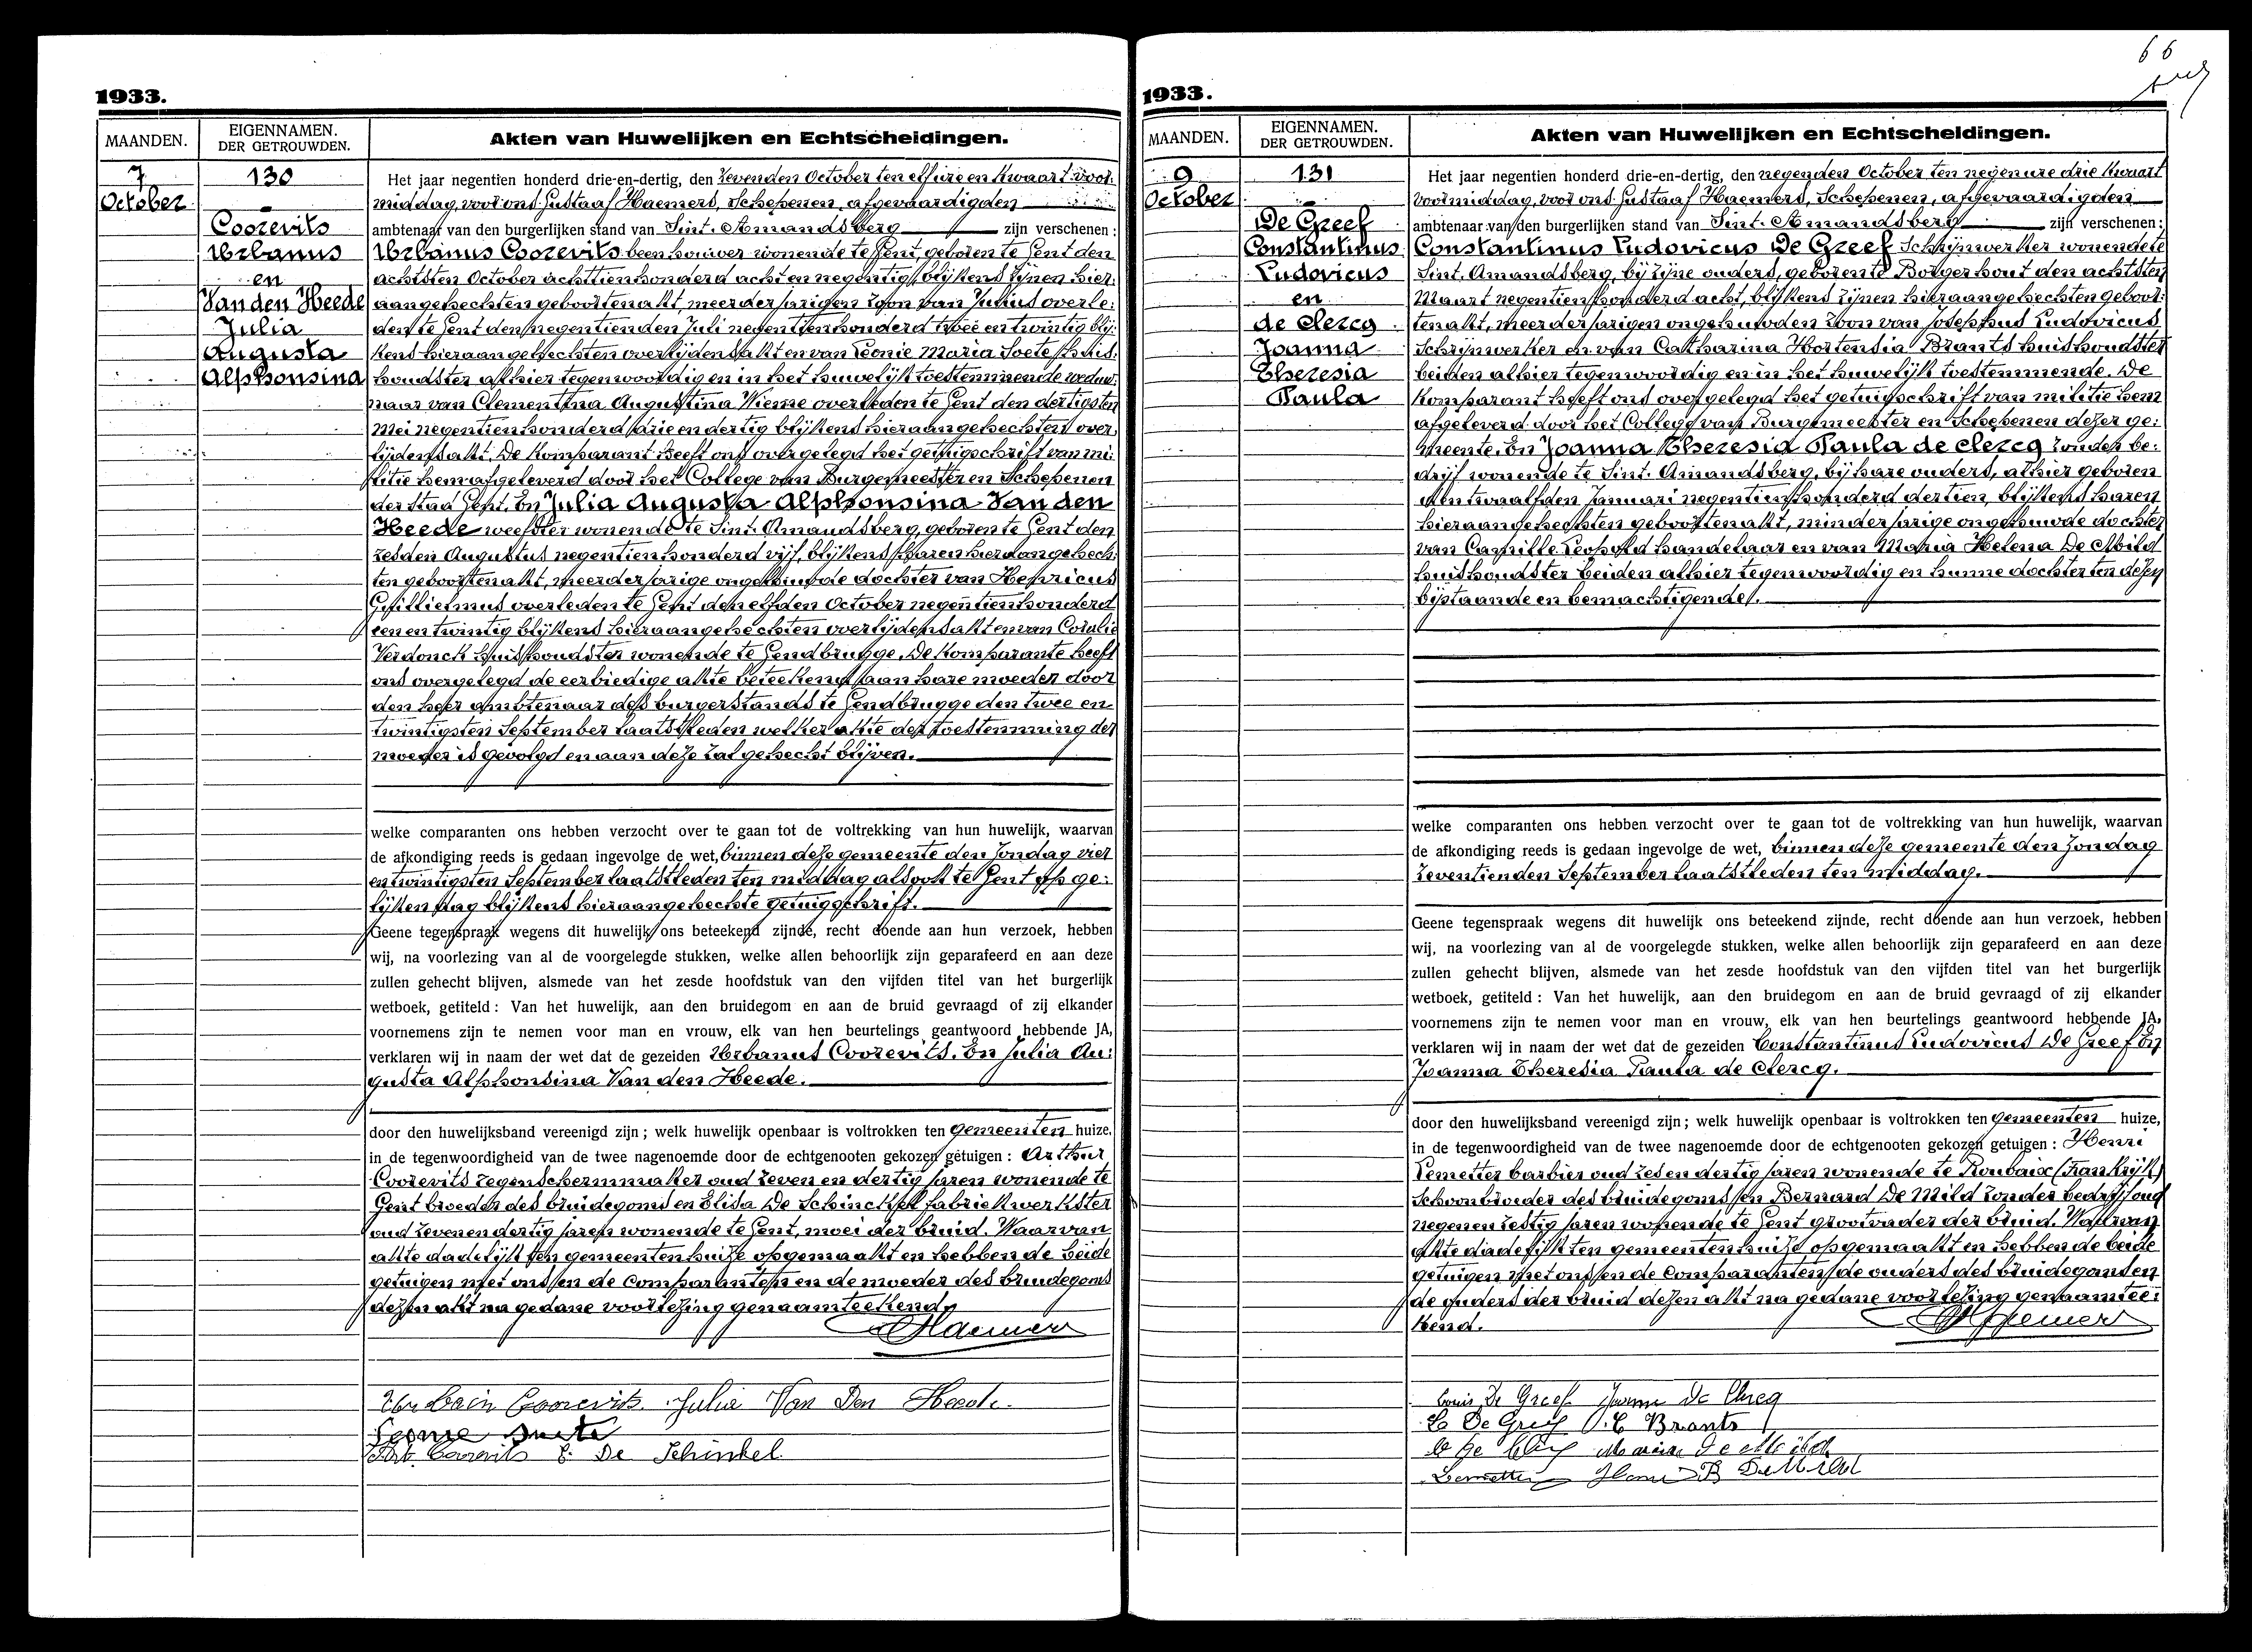 1933.
MAANDEN.
EIGENNAMEN.
DER GETROUWDEN.
Akten van Huwelijken en Echtscheidingen.
7
October
130
Coorevits
Urbanus
en
Van den Heede
Julia
Augusta
Alphonsina
Het jaar negentien honderd drie-en-dertig, den zevenden October ten elf ure en kwaart voor:
middag, voor ons Gustaaf Haemers, Schepenen, afgevaardigden
ambtenaar van den burgerlijken stand van Sint. Amandsberg zijn verschenen:
Urbanus Coorevits beenhouwer wonende te Gent, geboren te Gent den
achtsten October achttienhonderd acht en negentig, blijkens zijnen hier:
aangehechten geboortenakt, meerderjarigen zoon van Julius overle:
den te Gent den negentienden Juli negentienhonderd twee en twintig blij:
kens hieraangehechten overlijdensakt en van Leonie Maria Soete huis:
houdster alhier tegenwoordig en in het huwelijk toestemmende weduw:
naar van Clementina Augustina Wieme overleden te Gent den dertigsten
Mei negentienhonderd drie en dertig blijkens hieraangehechten over:
lijdensakt. De komparant heeft ons overgelegd het getuigschrift van mi:
litie hem afgeleverd door het College van Burgemeester en Schepenen
der stad Gent. En Julia Augusta Alphonsina Van den
Heede weefster wonende te Sint. Amandsberg, geboren te Gent den
zesden Augustus negentienhonderd vijf, blijkens haren hieraangehech:
ten geboortenakt, meerderjarige ongehuwde dochter van Henricus
Guillielmus overleden te Gent den elfden October negentienhonderd
een en twintig blijkens hieraangehechten overlijdensakt en van Coralie
Verdonck huishoudster wonende te Gendbrugge. De komparante heeft
ons overgelegd de eerbiedige akte beteekend aan hare moeder door
den heer ambtenaar des burgerstands te Gendbrugge den twee en
twintigsten September laatstleden welker akte der toestemming der
moeder is gevolgd en aan deze zal gehecht blijven.
welke comparanten ons hebben verzocht over te gaan tot de voltrekking van hun huwelijk, waarvan
de afkondiging reeds is gedaan ingevolge de wet, binnen deze gemeente den Zondag vier
en twintigsten September laatstleden ten middag alsook te Gent op ge:
lijken dag blijkens hieraangehechte getuigschrift.
Geene tegenspraak wegens dit huwelijk ons beteekend zijnde, recht doende aan hun verzoek, hebben
wij, na voorlezing van al de voorgelegde stukken, welke allen behoorlijk zijn geparafeerd en aan deze
zullen gehecht blijven, alsmede van het zesde hoofdstuk van den vijfden titel van het burgerlijk
wetboek, getiteld: Van het huwelijk, aan den bruidegom en aan de bruid gevraagd of zij elkander
voornemens zijn te nemen voor man en vrouw, elk van hen beurtelings geantwoord hebbende JA,
verklaren wij in naam der wet dat de gezeiden Urbanus Coorevits. En Julia Au:
gusta Alphonsina Van den Heede.
door den huwelijksband vereenigd zijn; welk huwelijk openbaar is voltrokken ten gemeenten huize,
in de tegenwoordigheid van de twee nagenoemde door de echtgenooten gekozen getuigen: Arthur
Coorevits regenschermmaker oud zeven en dertig jaren wonende te
Gent broeder des bruidegoms en Elisa De Schinckel fabriekwerkster
oud zeven en dertig jaren wonende te Gent, moei der bruid. Waarvan
akte dadelijk ten gemeentenhuize opgemaakt en hebben de beide
getuigen met ons en de comparanten en de moeder des bruidegoms
dezen akt na gedane voorlezing genaamteekend.
Haemers
Urbain Coorevits Julia Van Den Heede
Leonie Soete
Art. Coorevits E. De Schinkel
1933.
66
MAANDEN.
EIGENNAMEN.
DER GETROUWDEN.
Akten van Huwelijken en Echtscheidingen.
9
October
131
De Greef
Constantinus
Ludovicus
en
de Clercq
Joanna
Theresia
Paula
Het jaar negentien honderd drie-en-dertig, den negenden October ten negen ure drie kwaart
voormiddag, voor ons Gustaaf Haemers, Schepenen, afgevaardigden
ambtenaar van den burgerlijken stand van Sint. Amandsberg zijn verschenen:
Constantinus Ludovicus De Greef Schrijnwerker wonende te
Sint. Amandsberg, bij zijne ouders, geboren te Borgerhout den achtsten
Maart negentienhonderd acht, blijkens zijnen hieraangehechten geboor:
tenakt, meerderjarigen ongehuwden zoon van Josephus Ludovicus
Schrijnwerker en van Catharina Hortensia Brants huishoudster
beiden alhier tegenwoordig en in het huwelijk toestemmende. De
komparant heeft ons overgelegd het getuigschrift van militie hem
afgeleverd door het College van Burgemeester en Schepenen dezer ge:
meente. En Joanna Theresia Paula de Clercq zonder be:
drijf wonende te Sint. Amandsberg, bij hare ouders, alhier geboren
den twaalfden Januari negentienhonderd dertien, blijkens haren
hieraangehechten geboortenakt, minderjarige ongehuwde dochter
van Camille Leopold handelaar en van Maria Helena De Mild
huishoudster beiden alhier tegenwoordig en hunne dochter ten dezen
bijstaande en bemachtigende.
welke comparanten ons hebben verzocht over te gaan tot de voltrekking van hun huwelijk, waarvan
de afkondiging reeds is gedaan ingevolge de wet, binnen deze gemeente den Zondag
zeventienden September laatstleden ten middag.
Geene tegenspraak wegens dit huwelijk ons beteekend zijnde, recht doende aan hun verzoek, hebben
wij, na voorlezing van al de voorgelegde stukken, welke allen behoorlijk zijn geparafeerd en aan deze
zullen gehecht blijven, alsmede van het zesde hoofdstuk van den vijfden titel van het burgerlijk
wetboek, getiteld: Van het huwelijk, aan den bruidegom en aan de bruid gevraagd of zij elkander
voornemens zijn te nemen voor man en vrouw, elk van hen beurtelings geantwoord hebbende JA,
verklaren wij in naam der wet dat de gezeiden Constantinus Ludovicus De Greef En
Joanna Theresia Paula de Clercq.
door den huwelijksband vereenigd zijn; welk huwelijk openbaar is voltrokken ten gemeenten huize,
in de tegenwoordigheid van de twee nagenoemde door de echtgenooten gekozen getuigen: Henri
Lemetter barbier oud zes en dertig jaren wonende te Roubaix (Frankrijk)
Schoonbroeder des bruidegoms en Bernard De Mild zonder bedrijf oud
negen en zestig jaren wonende te Gent grootvader der bruid. Waarvan
akte dadelijk ten gemeentenhuize opgemaakt en hebben de beide
getuigen met ons en de comparanten, de ouders des bruidegoms en
de ouders der bruid dezen akt na gedane voorlezing genaamtee:
kend.
Haemers
Louis De Greef De Clercq
De Greef C. Brants
Maria De Mild
Henri B De Mild